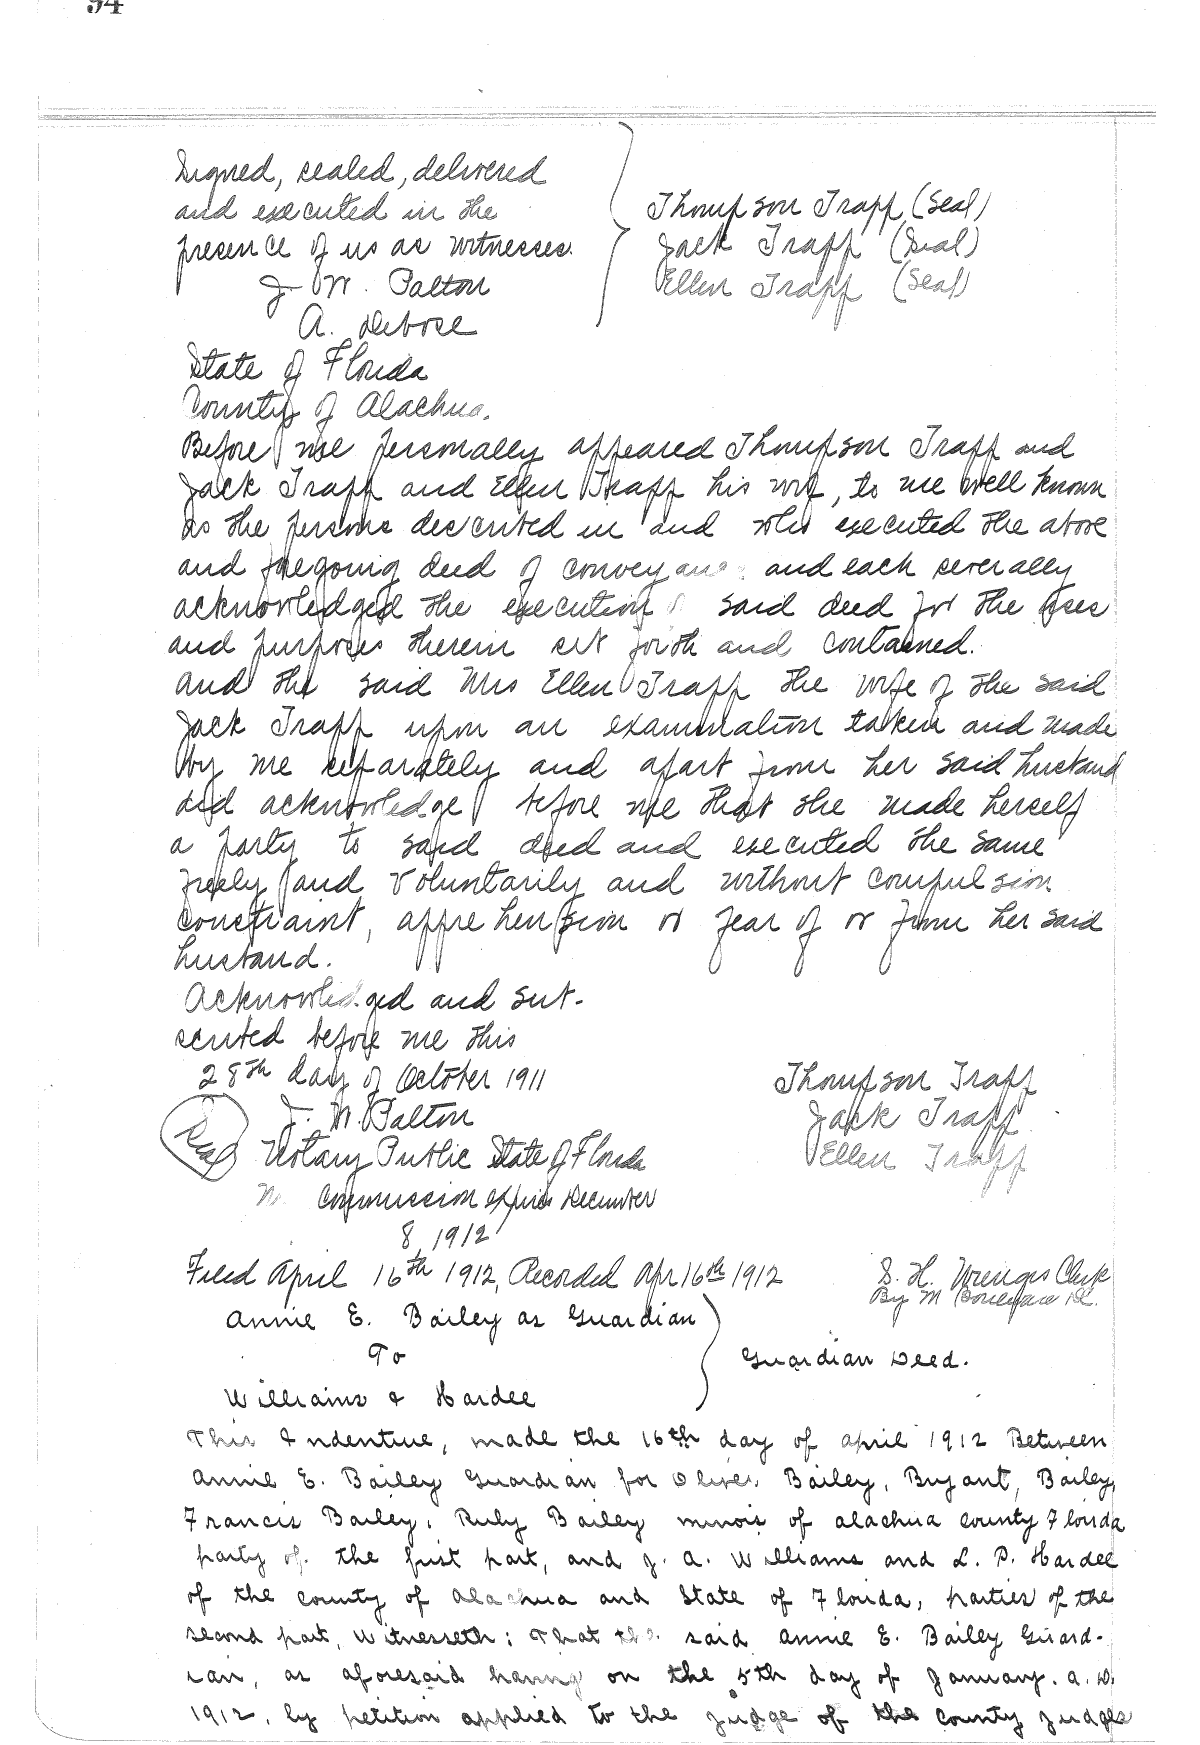 54
Signed, sealed, delivered
and executed in the
presence of us as witnesses.
J. W. Palton
A. Debose
Thompson Trapp (Seal)
Jack Trapp (Seal)
Ellen Trapp (Seal)
State of Florida
County of Alachua.
Before me personally appeared Thompson Trapp and
Jack Trapp and Ellen Trapp his wife, to me well known
as the persons described in and who executed the above
and foregoing deed of conveyance and each severally
acknowledged the execution said deed for the uses
and purposes therein set forth and contained.
And the said Mrs Ellen Trapp the wife of the said
Jack Trapp upon an examination taken and made
by me separately and apart from her said husband
did acknowledge before me that she made herself
a party to said deed and executed the same
freely and voluntarily and without compulsion
constraint, apprehension or fear of or from her said
husband.
Acknowledged and sub-
scribed before me this
28th day of October 1911
J. W. Palton
Seal Notary Public State of Florida
Commission expires December
8, 1912
Thompson Trapp
Jack Trapp
Ellen Trapp
Filed April 16th 1912, Recorded Apr 16th 1912
S. H. Wienges Clerk
By M D.C.
Annie E. Bailey as Guardian
To
Williams & Hardee
Guardian Deed.
This Indenture, made the 16th day of April 1912 Between
Annie E. Bailey Guardian for Oliver Bailey, Bryant, Bailey,
Francis Bailey, Ruby Bailey minors of Alachua County Florida
party of the first part, and J. A. Williams and L. P. Hardee
of the County of Alachua and State of Florida, parties of the
second part, Witnesseth: That the said Annie E. Bailey Guard-
ian, as aforesaid having on the 5th day of January. A. D.
1912, by petition applied to the Judge of the County Judges